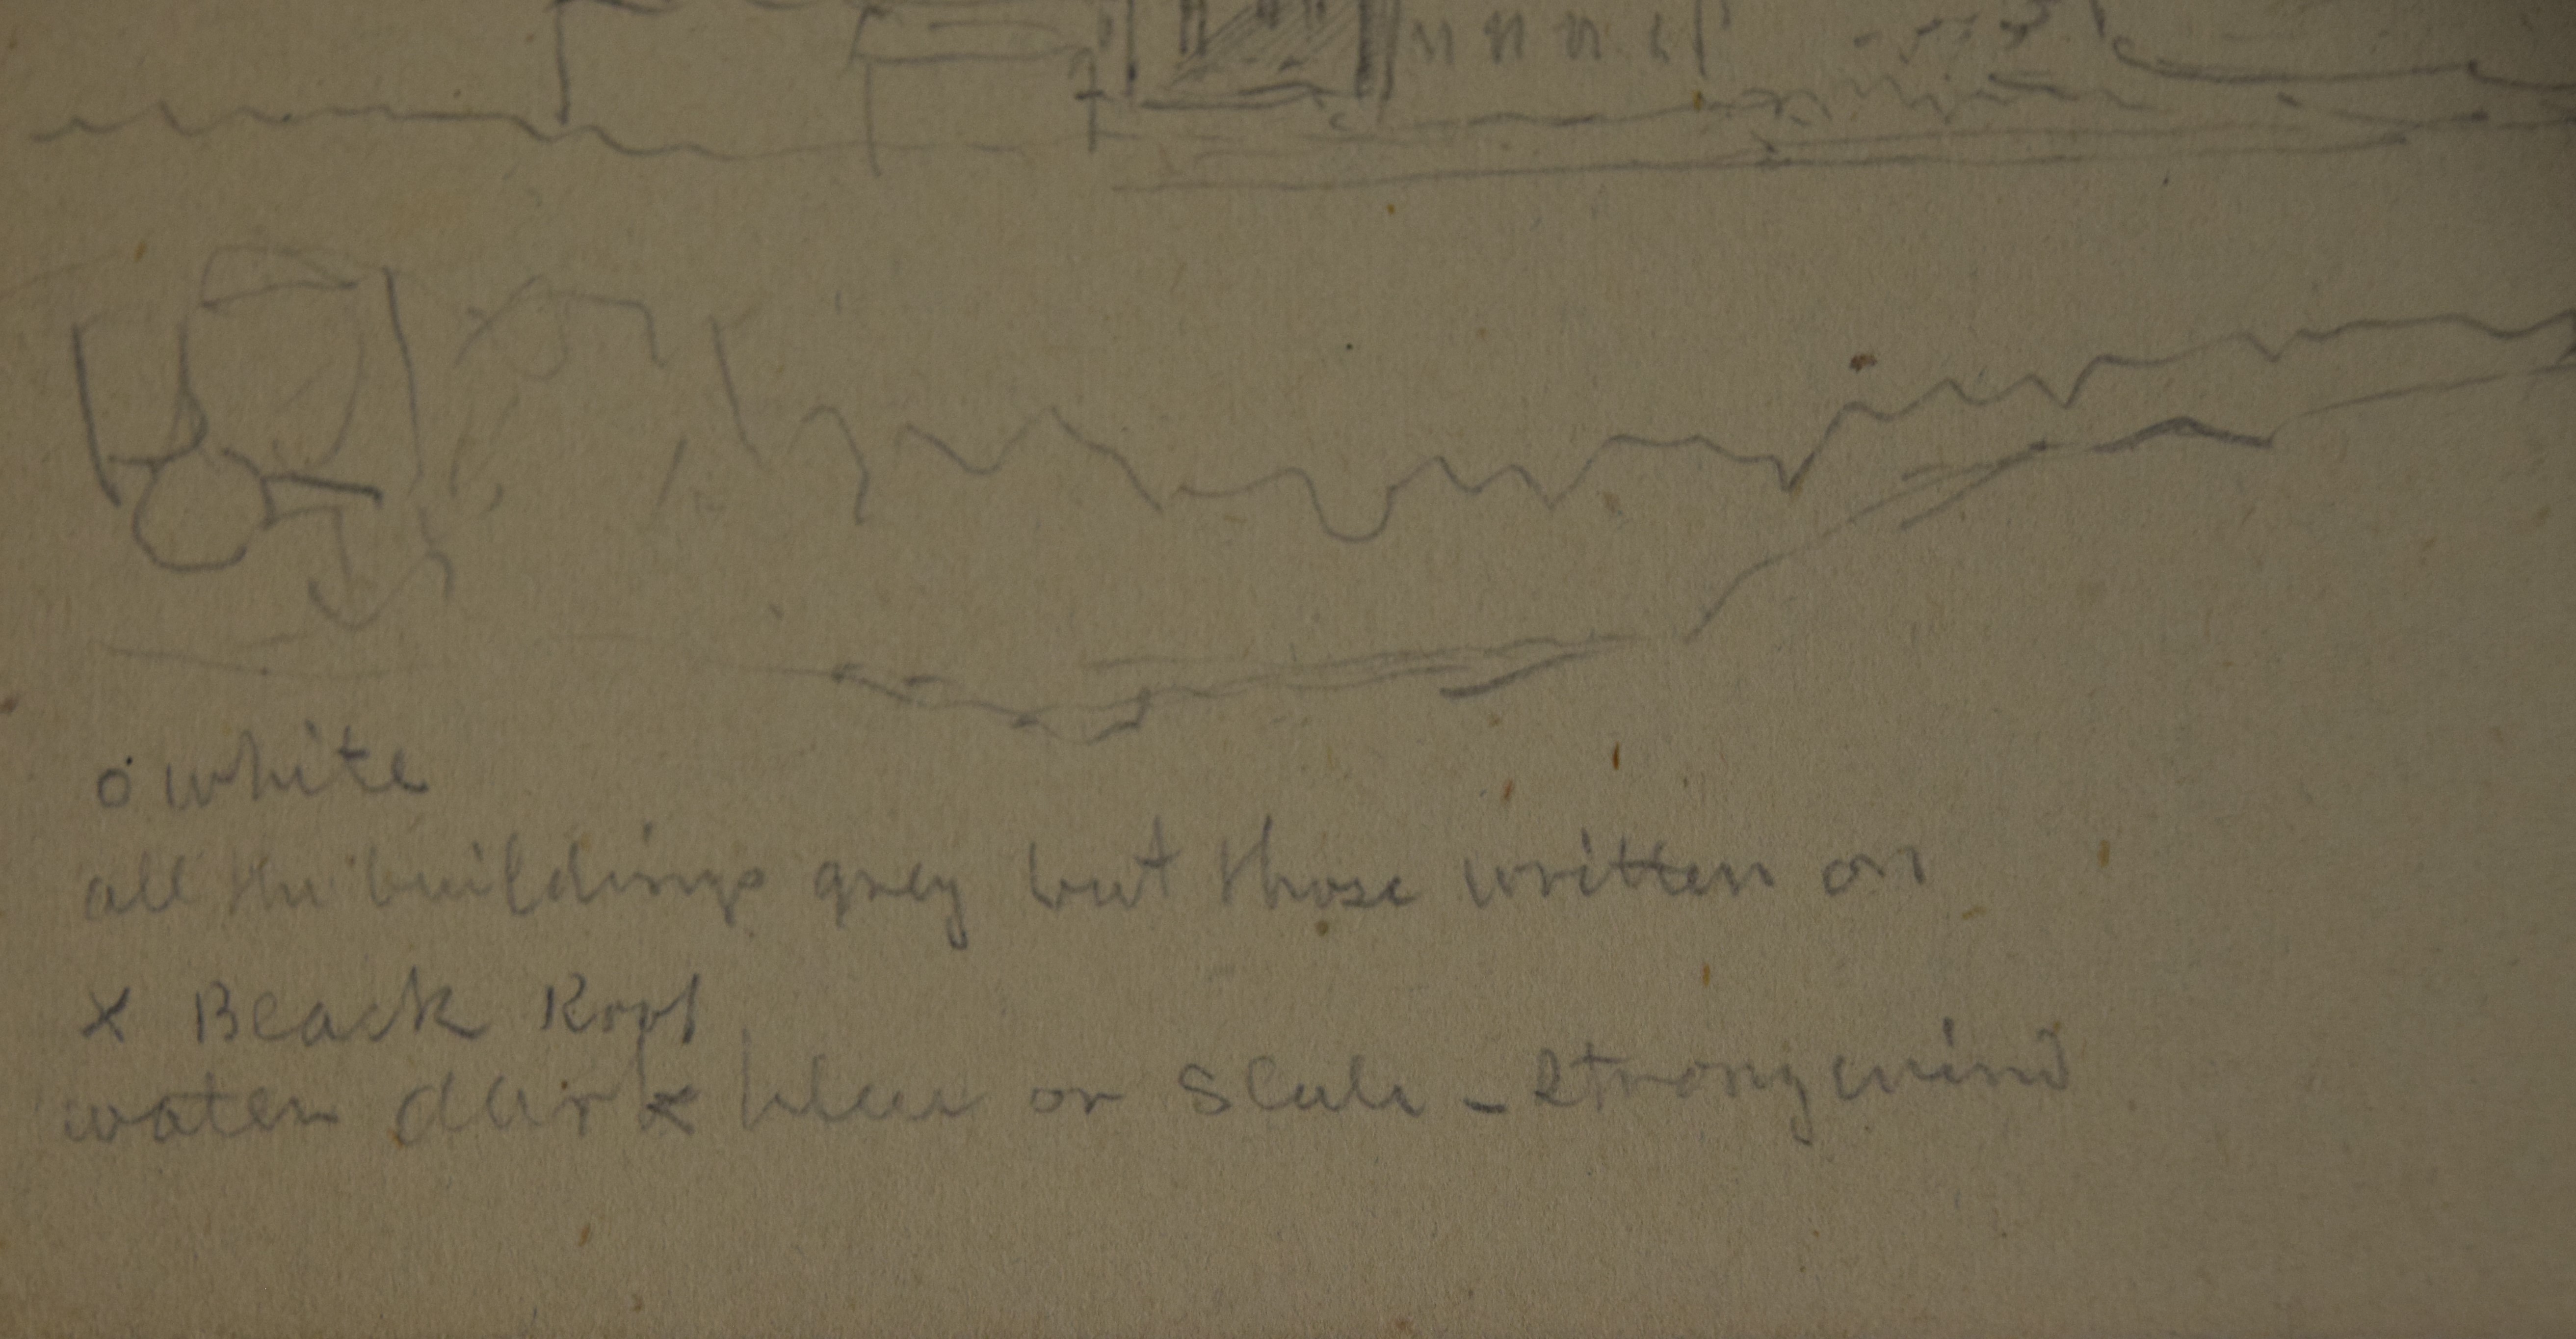 o white
all the buildings grey but those written on
x Black Roof
water dark blue or Slate - Strong wind